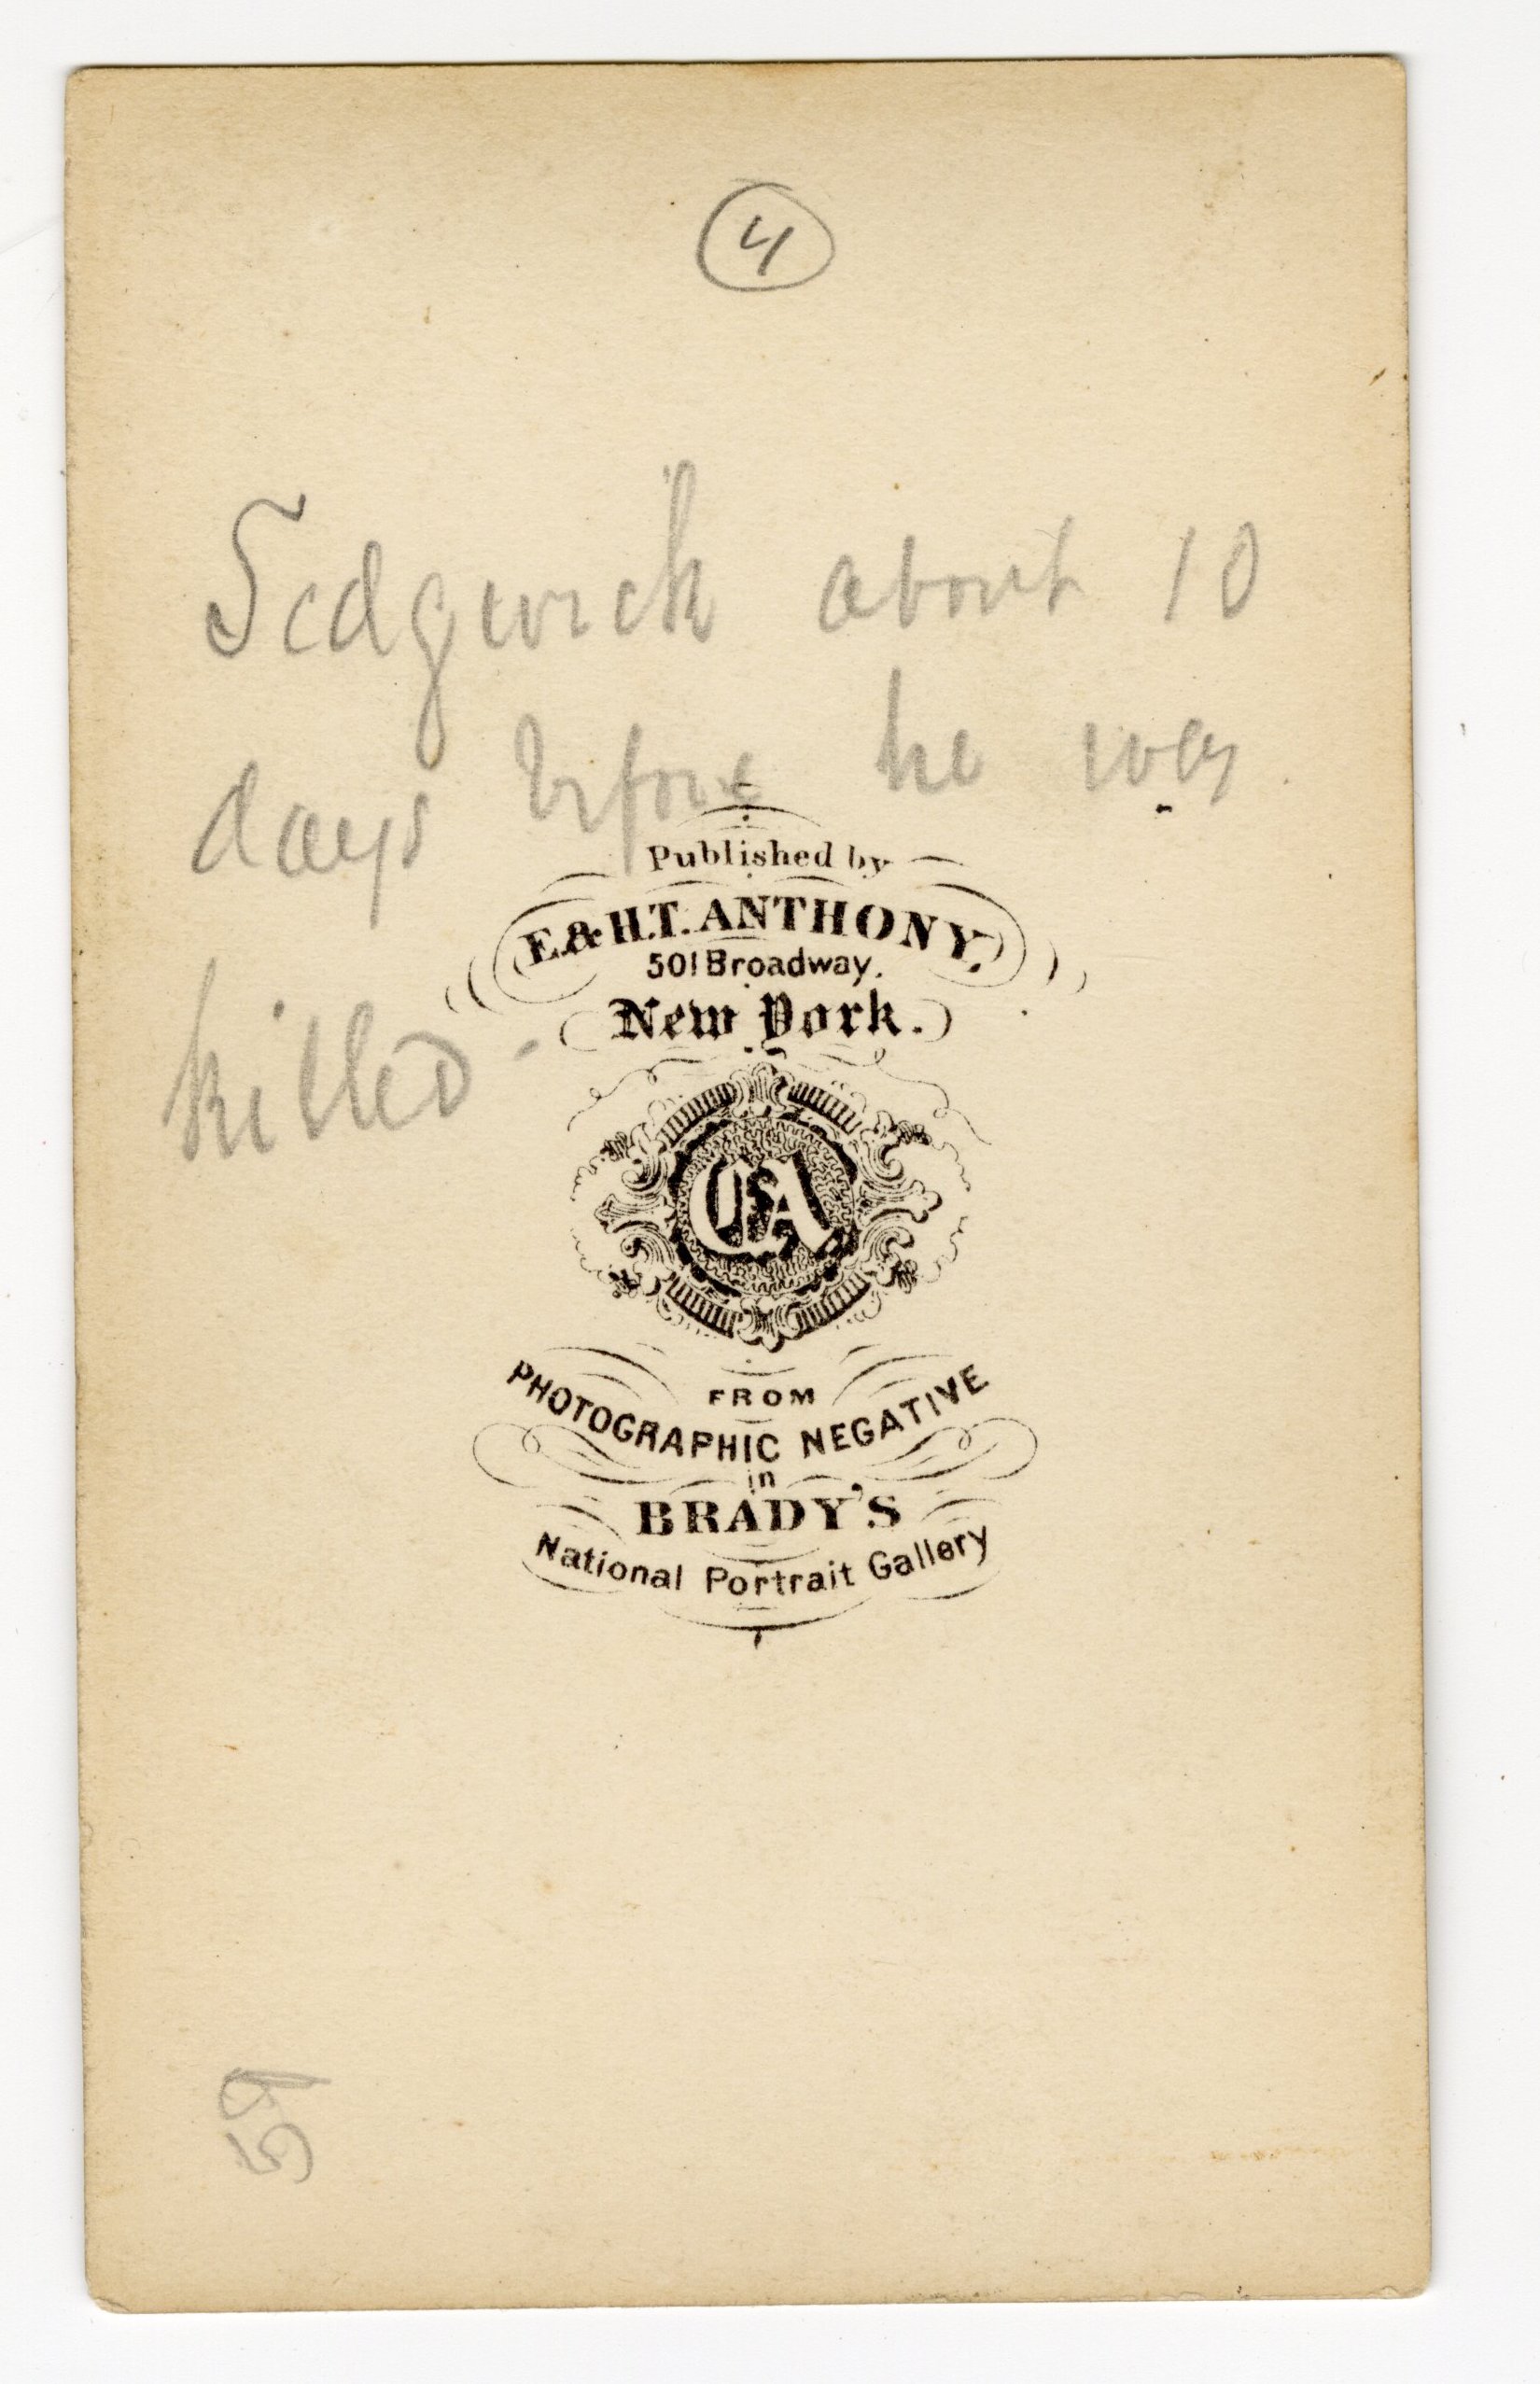 4
Sedgwick about 10
days before he was
killed -
Published by
E. & H.T. ANTHONY,
501 Broadway.
New York.
EA
FROM
PHOTOGRAPHIC NEGATIVE
in
BRADY'S
National Portrait Gallery
59